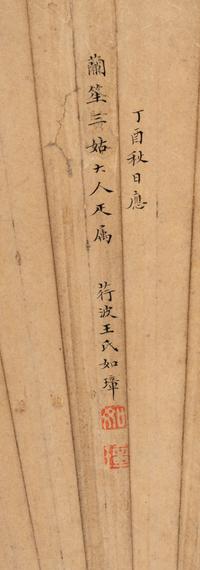 丁酉秋日應
蘭笙三姑大人疋屬
荇波王氏如璋
如
璋